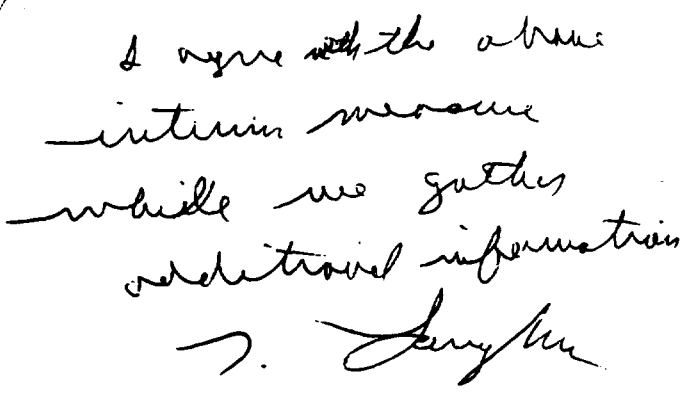 I agree with the above
interim measure
while we gather
additional information